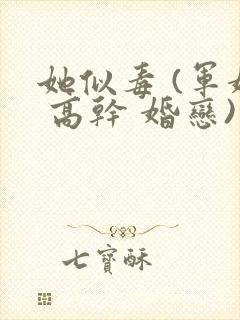 她似毒(軍婚
高幹 婚戀)
七寶酥